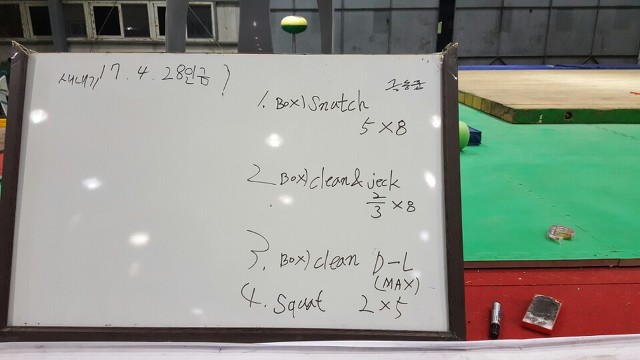 새내기 17. 4. 28일 금 )
1. BOX) Snatch
5 × 8
2. BOX) clean & jeck
2/3 × 8
3. BOX) clean D-L
(MAX)
4. Squat 2 × 5